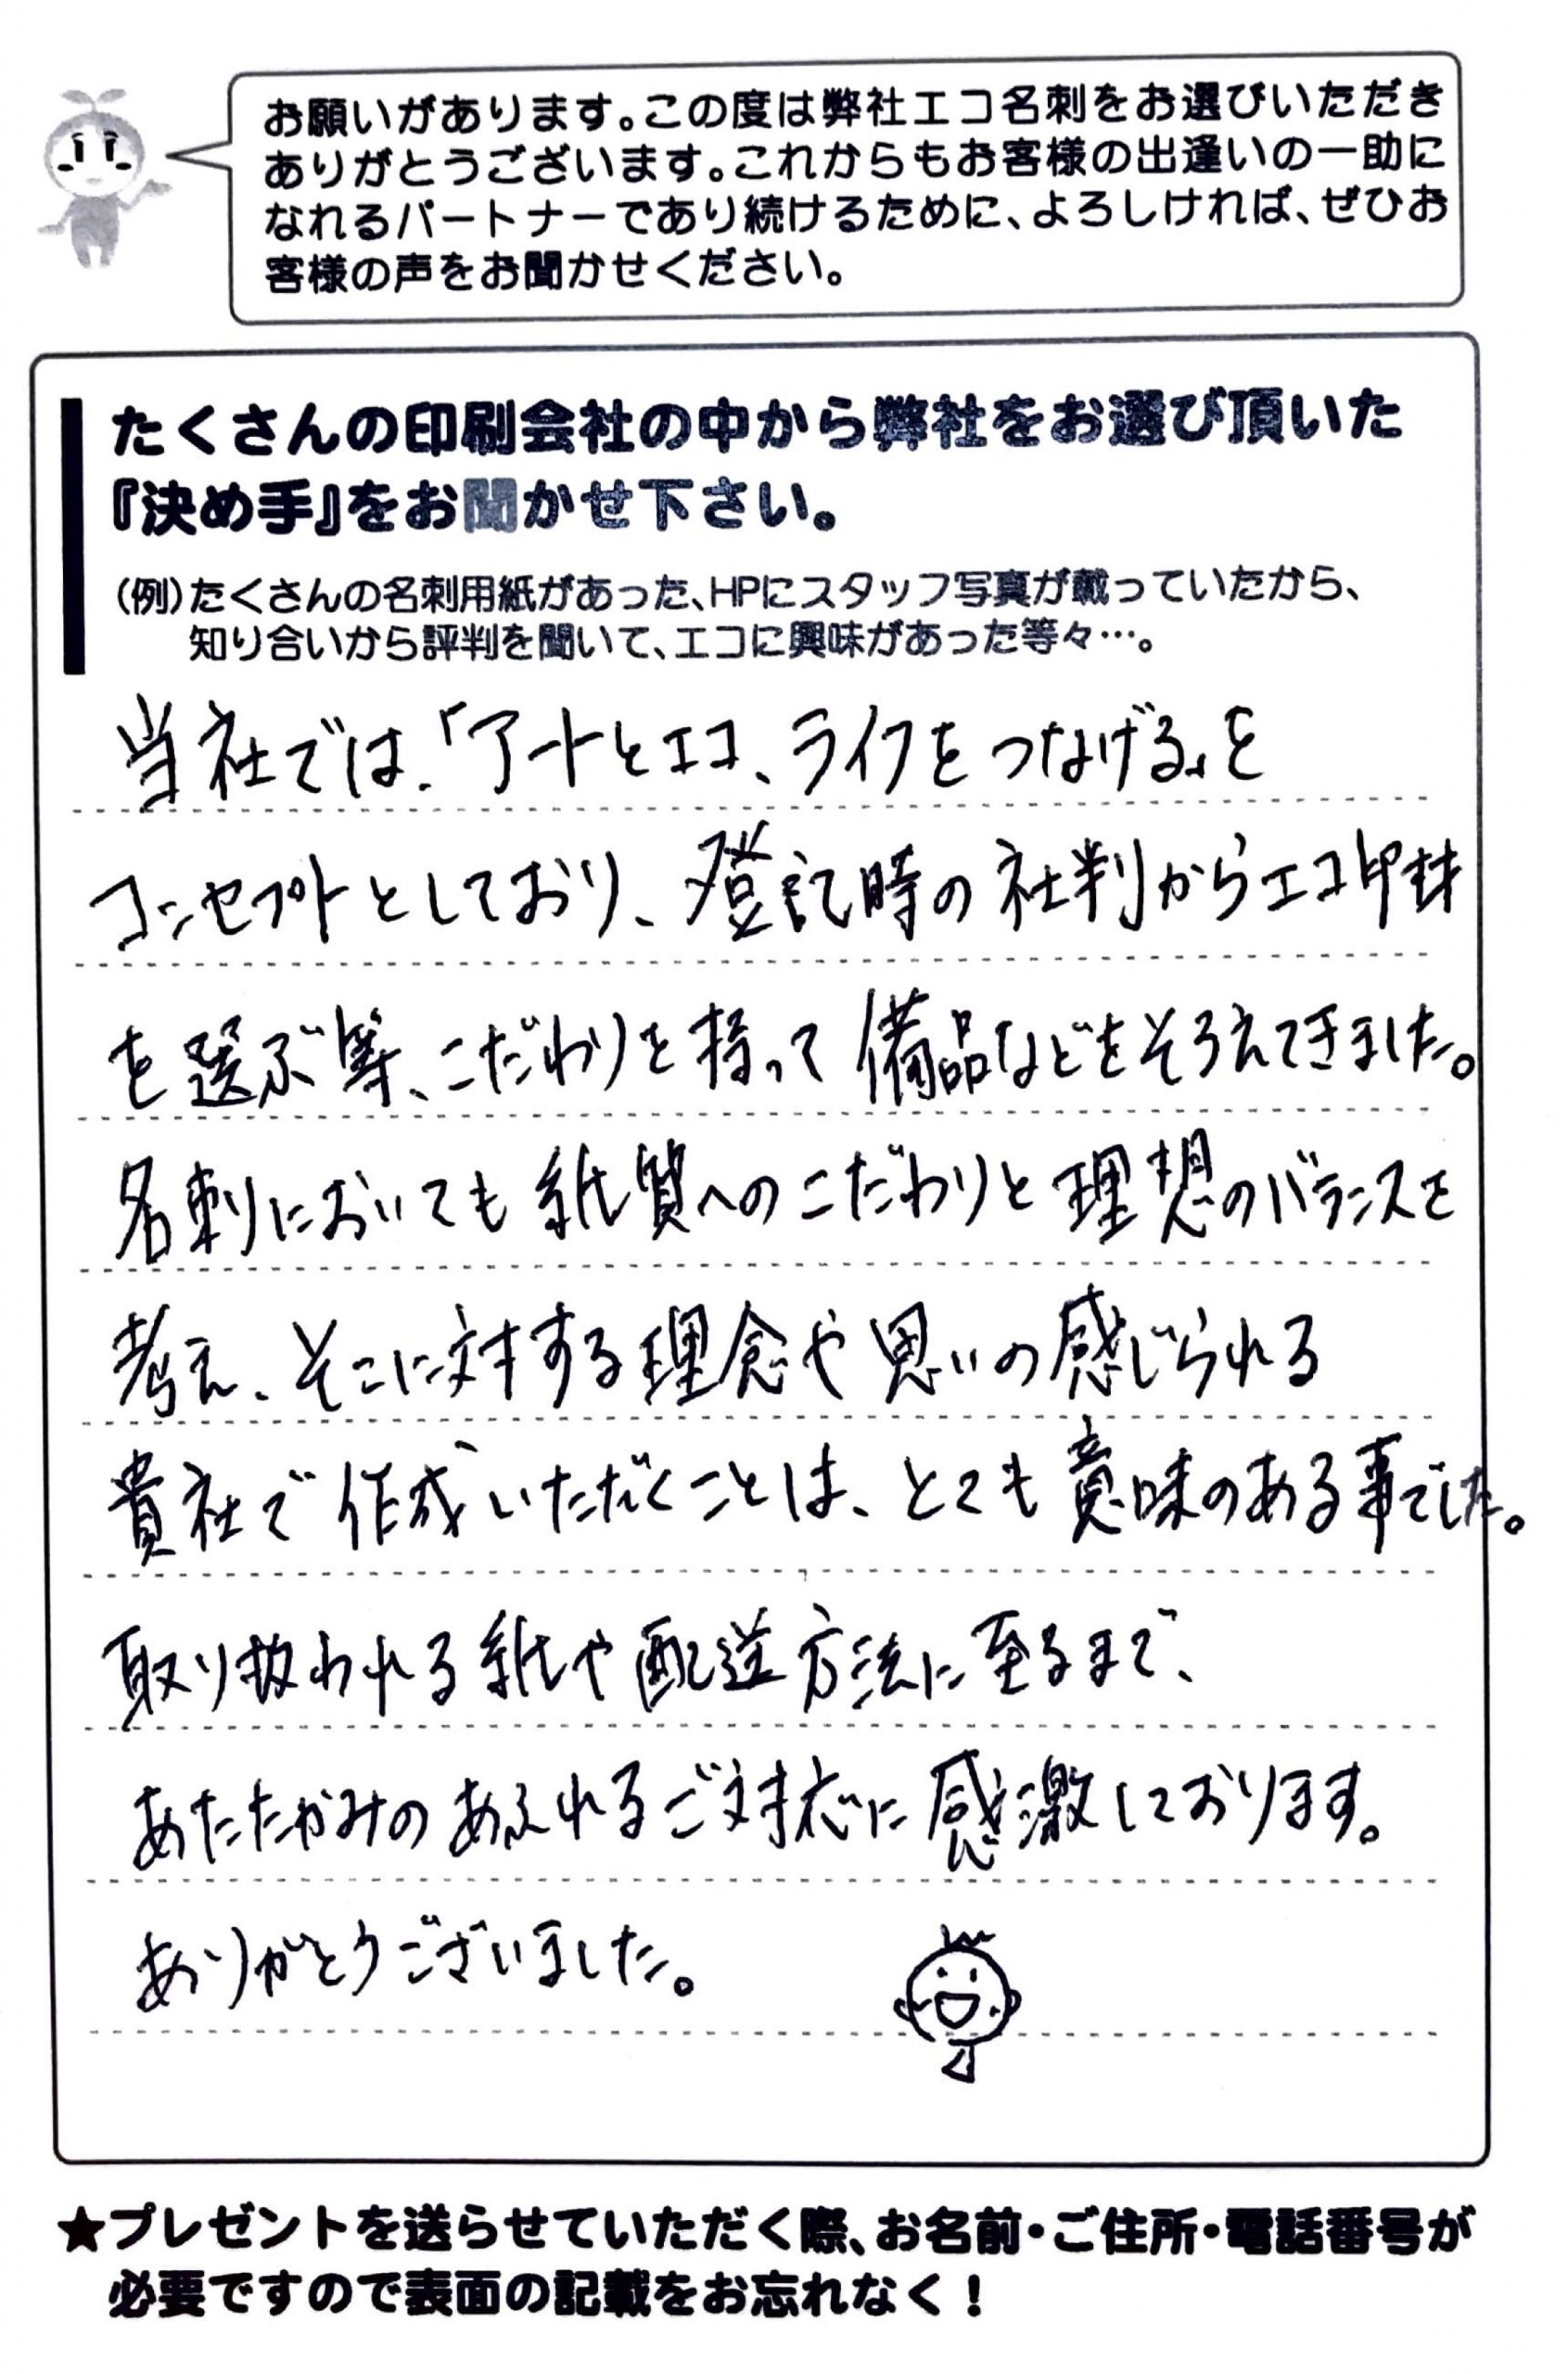 お願いがあります。この度は弊社エコ名刺をお選びいただき
ありがとうございます。これからもお客様の出逢いの一助に
なれるパートナーであり続けるために、よろしければ、ぜひお
客様の声をお聞かせください。
たくさんの印刷会社の中から弊社をお選び頂いた
『決め手』をお聞かせ下さい。
(例)たくさんの名刺用紙があった、HPにスタッフ写真が載っていたから、
知り合いから評判を聞いて、エコに興味があった等々…。
当社では、「アートとエコ、ライフをつなげる」を
コンセプトとしており、登記時の社判からエコ印材
を選ぶ等、こだわりを持って備品などをそろえてきました。
名刺においても紙質へのこだわりと理想のバランスを
考え、そこに対する理念や思いの感じられる
貴社で作成いただくことは、とても意味のある事でした。
取り扱われる紙や配送方法に至るまで、
あたたかみのあふれるご対応に感激しております。
ありがとうございました。
★プレゼントを送らせていただく際、お名前・ご住所・電話番号が
必要ですので表面の記載をお忘れなく!